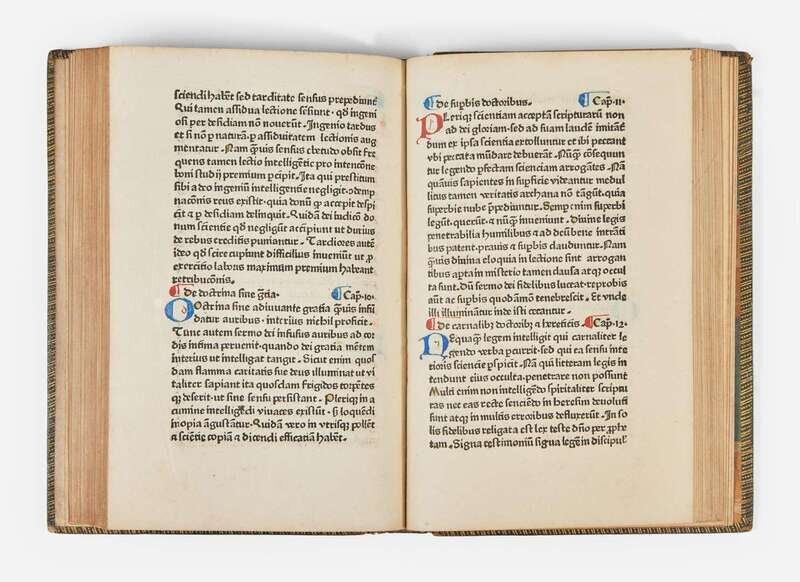 sciendi habēt sed tarditate sensus prepediunt̄
Qui tamen assidua lectione sēsiunt · qd̄ ingeni
osi per desidiam non nouerūt · Ingenio tardus
et si nō p naturā · p assiduitatem lectionis aug
mentatur · Nam quīs sensus ebetudo obsit fre
quens tamen lectio intelligētie pro intencōne
boni studij premium pcipit · Ita qui prestitum
sibi a deo ingeniū intelligentie negligit · odemp
nacōnis reus existit · quia donū qd̄ accepit despi
cit et p desidiam delinquit · Quidā dei iudicō do
num scientie qd̄ negligūt accipiunt ut durius
de rebus creditis puniantur · Tardiores autē
ideo qd̄ scire cupiunt difficilius inueniūt ut p
exercitio laboris maximum premium habeant
retribucōnis.
De doctrina sine grātia · Cap̄ · 10 ·
Doctrina sine adiuuante gratia quīs infū
datur auribus · interius nichil proficit ·
Tunc autem sermo dei infusus auribus ad cor
dis intima peruenit · quando dei gratia mētem
interius ut intelligat tangit · Sicut enim quos
dam flamma caritatis sue deus illuminat ut vi
taliter sapiant ita quosdam frigidos torpētes
qz deserit · ut sine sensu persistant · Pleriqz in a
cumine intelligēdi viuaces existūt · si loquēdi
inopia angustātur · Quidā vero in vtrisqz pollēt
et sciētie copiā et dicendi efficatiam habēt ·
De supbis doctoribus · Cap̄ · 11 ·
Plerique scientiam acceptā scripturarū non
ad dei gloriam · sed ad suam laudē imitāt̄
dum ex ipsa scientia extolluntur et ibi peccant
vbi peccata mūdare debuerāt · Nūqz cōsequun
tur legendo pfectam scienciam arrogātes · Nā
quāuis sapientes in supficie videantur medul
litus tamen veritatis archana nō tāgūt · quia
superbie nube prepediuntur · Semp enim supbi
legūt · querūt · et nūqz inueniunt · Diuine legis
penetrabilia humilibus et ad deū bene intrāti
bus patent · prauis et supbis clauduntur · Nam
quīs diuina eloquia in lectione sint arrogan
tibus apta in misterio tamen clausa atqz occul
ta sunt · dū sermo dei fidelibus luceat · reprobis
aūt ac supbis quodāmō tenebrescit · Et vnde
illi illuminātur inde isti cecantur ·
De carnalibz doctoribz et hereticis · Cap̄ · 12 ·
Nequaqz legem intelligit qui carnaliter le
gendo verba pcurrit · sed qui ea sensu inte
rioris sciencie pspicit · Nā qui litteram legis in
tendunt eius occulta · penetrare non possunt
Multi enim non intelligēdo spiritaliter scriptu
ras nec eas recte senciēdo in heresim deuoluti
sunt atqz in multis erroribus defluxerūt · In so
lis fidelibus religata est lex teste dn̄o per pphe
tam · Signa testimoniū signa legē in discipul'